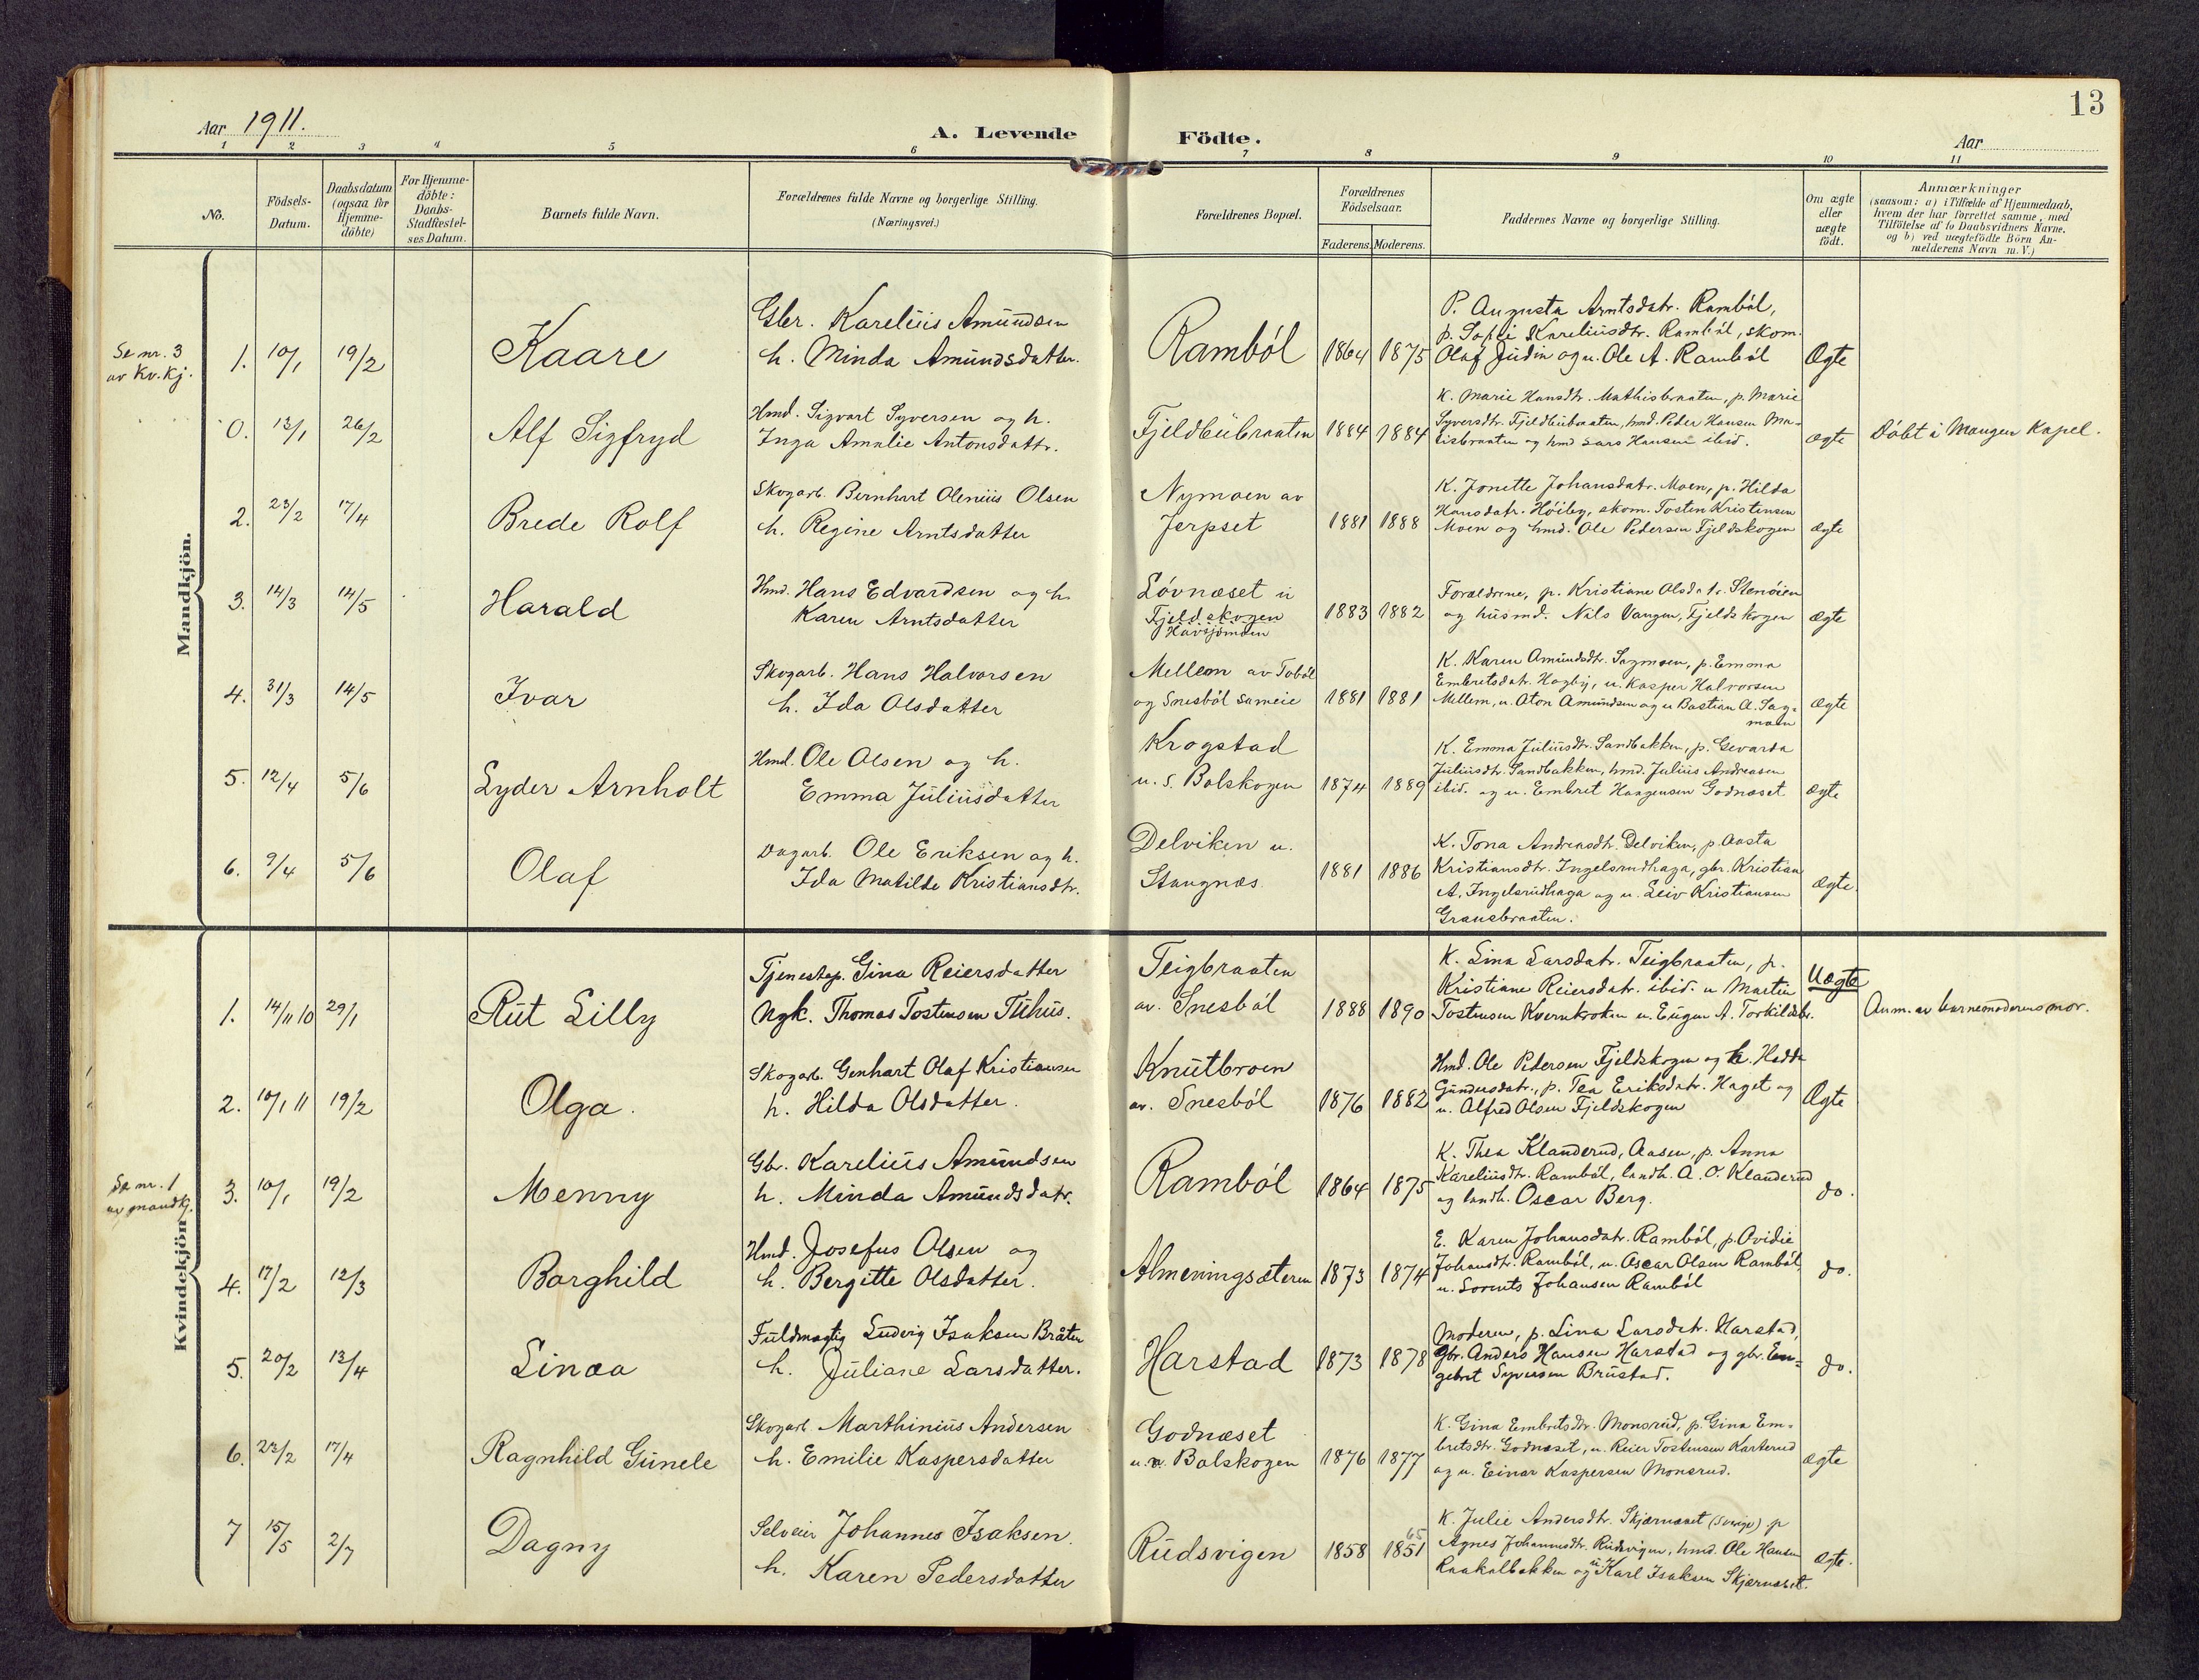 13
Aar 1911.
A. Levende Födte.
Aar
1 2 3 4 5 6 7 8 9 10 11
No.
Födsels-Datum.
Daabsdatum (ogsaa for Hjemme-döbte)
For Hjemme-döbte: Daabs-Stadfæstel-ses Datum.
Barnets fulde Navn.
Forældrenes fulde Navne og borgerlige Stilling.
(Næringsvei.)
Forældrenes Bopæl.
Forældrenes Födselsaar.
Faderens. Moderens.
Faddernes Navne og borgerlige Stilling.
Om ægte eller uægte födt.
Anmærkninger
(saasom: a) i Tilfælde af Hjemmedaab, hvem der har forrettet samme, med Tilföielse af to Daabsvidners Navne, og b) ved uægtefödte Börn Anmelderens Navn m. V.)
Mandkjön.
Se nr. 3
av Kv.kj.
1. 10/1 19/2 Kaare
Gbr. Karelius Amundsen
h. Minda Amundsdatter.
Ramból 1864 1875
P. Augusta Arntsdatr. Ramból,
p. Sofie Kareliusdtr. Ramból, skom.
Olaf Judin og u. Ole A. Ramból
Ægte
0. 13/1 26/2 Alf Sigfryd
Hmd. Sigvart Syversen og h.
Inga Amalie Antonsdattr.
Fjeldbubraaten 1884 1884
K. Marie Hansdtr. Mathisbraaten, p. Marie
Syversdtr. Fjeldbubraaten, hmd. Peder Hansen Ma-
tisbraaten og hmd Lars Hansen ibid.
ægte
Döbt i Mangen Kapel.
2. 23/2 17/4 Brede Rolf
Skogarb. Bernhart Olenius Olsen
h. Regine Arntsdatter
Nymoen av
Jerpset 1881 1888
K. Jonette Johansdatr. Moen, p. Hilda
Hansdatr. Höiby, skom. Tosten Kristensen
Moen og hmd. Ole Pedersen Fjeldskogen
ægte
3. 14/3 14/5 Harald
Hmd. Hans Edvardsen og h.
Karen Arntsdatter
Lóvnæset u
Fjeldskogen
Havsjómoen
1883 1882
Forældrene, p. Kristiane Olsdatr. Stenóien
og husmd. Nils Vangen, Fjeldskogen
ægte
4. 31/3 14/5 Ivar
Skogarb. Hans Halvorsen
h. Ida Olsdatter
Mellem av Toból
og Snesból sameie 1881 1881
K. Karen Amundsdtr. Sagmoen, p. Emma
Embretsdatr. Hagby, u. Kasper Halvorsen
Mellem, u. Aton Amundsen og u Bastian A. Sag-
moen
ægte
5. 12/4 5/6 Lyder Arnholt
Hmd. Ole Olsen og h.
Emma Juliusdatter
Krogstad
u. s. Bolskogen 1874 1889
K. Emma Juliusdtr. Sandbakken, p. Gevarda
Juliusdtr. Sandbakken, hmd. Julius Andreasen
ibid. og u. Embret Haagensen Godnæset.
ægte
6. 9/4 5/6 Olaf
Dagarb. Ole Eriksen og h.
Ida Matilde Kristiansdtr.
Delviken u.
Stangnæs 1881 1886
K. Tona Andreasdtr. Delviken, p. Aasta
Kristiansdtr. Ingelsrudhaga, gbr. Kristian
A. Ingelsrudhaga og u. Leiv Kristiansen
Gransbraaten.
ægte.
Kvindekjön
1. 14/11 10 29/1 Rut Lilly
Tjenestep. Gina Reiersdatter
Ngk. Thomas Tostensen Tuhus.
Teigbraaten
av. Snesból 1888 1890
K. Lina Larsdatr. Teigbraaten, p.
Kristiane Reiersdatr. ibid. u Martin
Tostensen Kvernkroken u. Eugen A. Torkildsbr.
Uægte
Anm. av barnemoderens mor.
2. 10/1 11 19/2 Olga.
Skogarb. Genhart Olaf Kristiansen
h. Hilda Olsdatter.
Knutbroen
av. Snesból 1876 1882
Hmd. Ole Pedersen Fjeldskogen og h. Hedda
Gundersdatr., p. Tea Eriksdatr. Haget og
u. Alfred Olsen Fjeldskogen
Ægte
Se nr. 1
av mandkj.
3. 10/1 19/2 Menny
Gbr. Karelius Amundsen
h. Minda Amundsdatr.
Ramból 1864 1875
K. Thea Klanderud, Aasen, p. Anna
Kareliusdtr. Ramból, landh. A. O. Klanderud
og landh. Oscar Berg.
do.
4. 17/2 12/3 Borghild
Hmd. Josefus Olsen og
h. Bergitte Olsdatter.
Almeningsæteren 1873 1874
E. Karen Johansdatr. Ramból, p. Ovidie
Johansdtr. Ramból, u. Oscar Olsen Ramból,
u. Lorents Johansen Ramból
do.
5. 20/2 13/4 Linæa
Fuldmægtig Ludvig Isaksen Bråten
h. Juliane Larsdatter.
Harstad 1873 1878
Moderen, p. Lina Larsdatr. Harstad,
gbr. Anders Hansen Harstad og gbr. En-
gebret Syversen Brustad.
do.
6. 23/2 17/4 Ragnhild Gunele
Skogarb Marthinius Andersen
h. Emilie Kaspersdatter
Godnæset
u. n. Bolskogen 1876 1877
K. Gina Embretsdtr. Monsrud, p. Gina Em-
bretsdtr. Godnæset, u. Reier Tostensen Karterud
og u. Einar Kaspersen Monsrud.
ægte
7 15/5 2/7 Dagny
Selveier Johannes Isaksen.
h. Karen Pedersdatter
Rudsvigen 1858 1851 65
K. Julie Andersdtr. Skjærnæset (Sverige) p
Agnes Johannesdtr. Rudsvigen, hmd. Ole Hansen
Raakalbakken og u. Karl Isaksen Skjærnæset.
ægte.